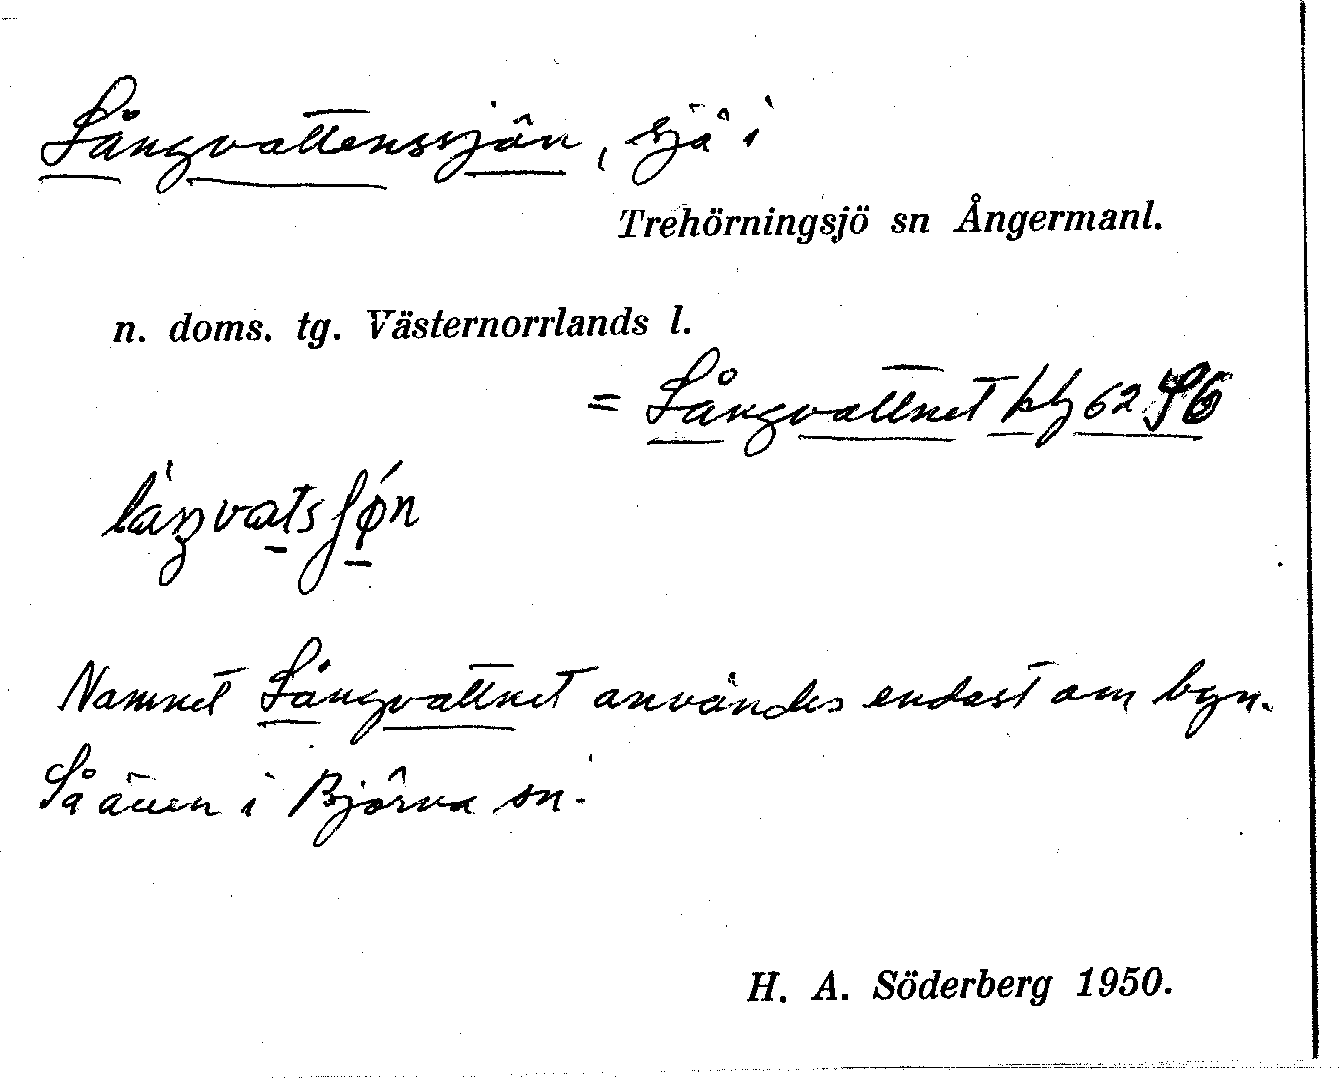 Långvattenssjön, sjö i
Trehörningsjö sn Ångermanl.
n. doms. tg. Västernorrlands l.
= Långvattnet kbl 62 S6
låŋvatsʃøn
Namnet Långvattnet användes endast om byn.
Så även i Björna sn.
H. A. Söderberg 1950.